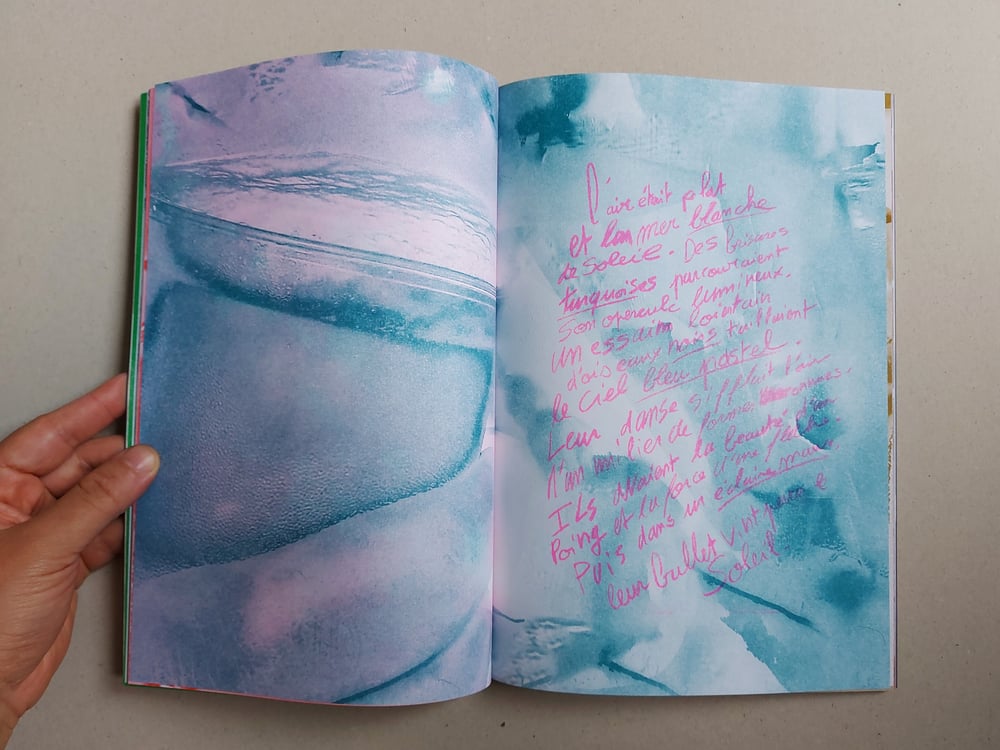 L'air était plat
et la mer blanche
de soleil. Des brisures
turquoises parcouraient
son opercule lumineux.
un essaim lointain
d'oiseaux noirs taillaient
le ciel bleu pastel.
Leur danse sifflait l'air
d'un millier de formes
Ils avaient la beauté d'un
Poing et la force d'une flèche
Puis dans un éclair mauve
leur ballet vint punir le
Soleil